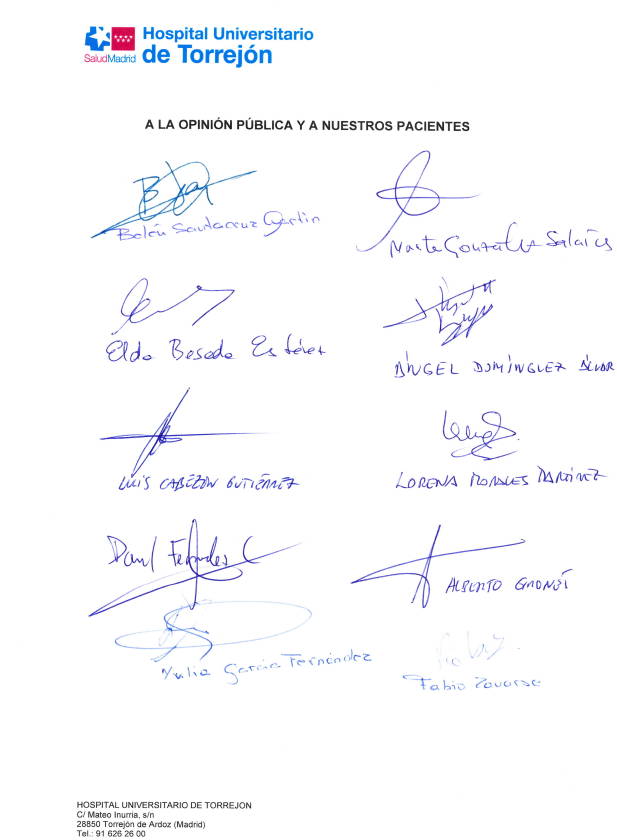 Hospital Universitario
SaludMadrid de Torrejón
A LA OPINIÓN PÚBLICA Y A NUESTROS PACIENTES
Belén Santacruz
Marta González
Elda Besada Estévez
ÁNGEL DOMÍNGUEZ
LUIS CABEZÓN GUTIÉRREZ
LORENA MORALES MARTÍNEZ
ALBERTO
Yulia García Fernández
Fabio
HOSPITAL UNIVERSITARIO DE TORREJON
C/ Mateo Inurria, s/n
28850 Torrejón de Ardoz (Madrid)
Tel.: 91 626 26 00